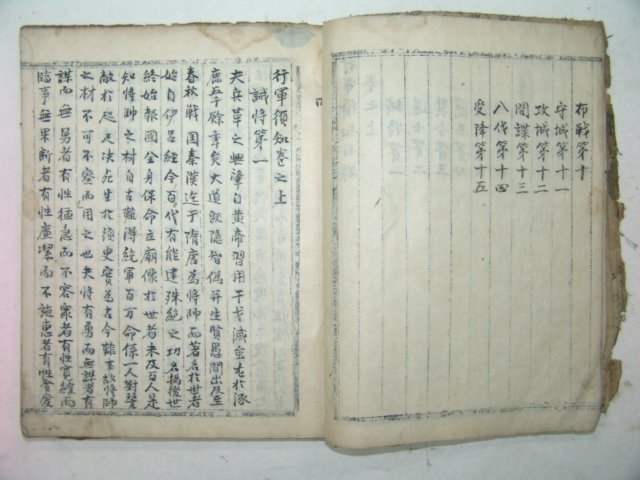 布戰第十
守城第十一
攻城第十二
間諜第十三
八伐第十四
受降第十五
行軍須知卷之上
誡將第一
夫兵革之興肇自黃帝習用干戈滅蚩尤於涿
鹿五千餘年矣大道旣隱智僞幷生賢愚間出及至
春秋戰國秦漢迄于隋唐爲將帥而著名於世者
始自伊呂經今百代有能建殊絶之功名揚後世
終始報國全身保命立廟像於世者未及百人是
知將帥之材自古難得統軍百万命係一人對壘
敵於咫尺決危生於須臾實爲古今難事故將帥
之材不可不察而用之也夫將有勇而無謀者有
謀而無勇者有性極急而不容衆者有性寬緩而
臨事無果斷者有性廉潔而不施惠者有性貪愛